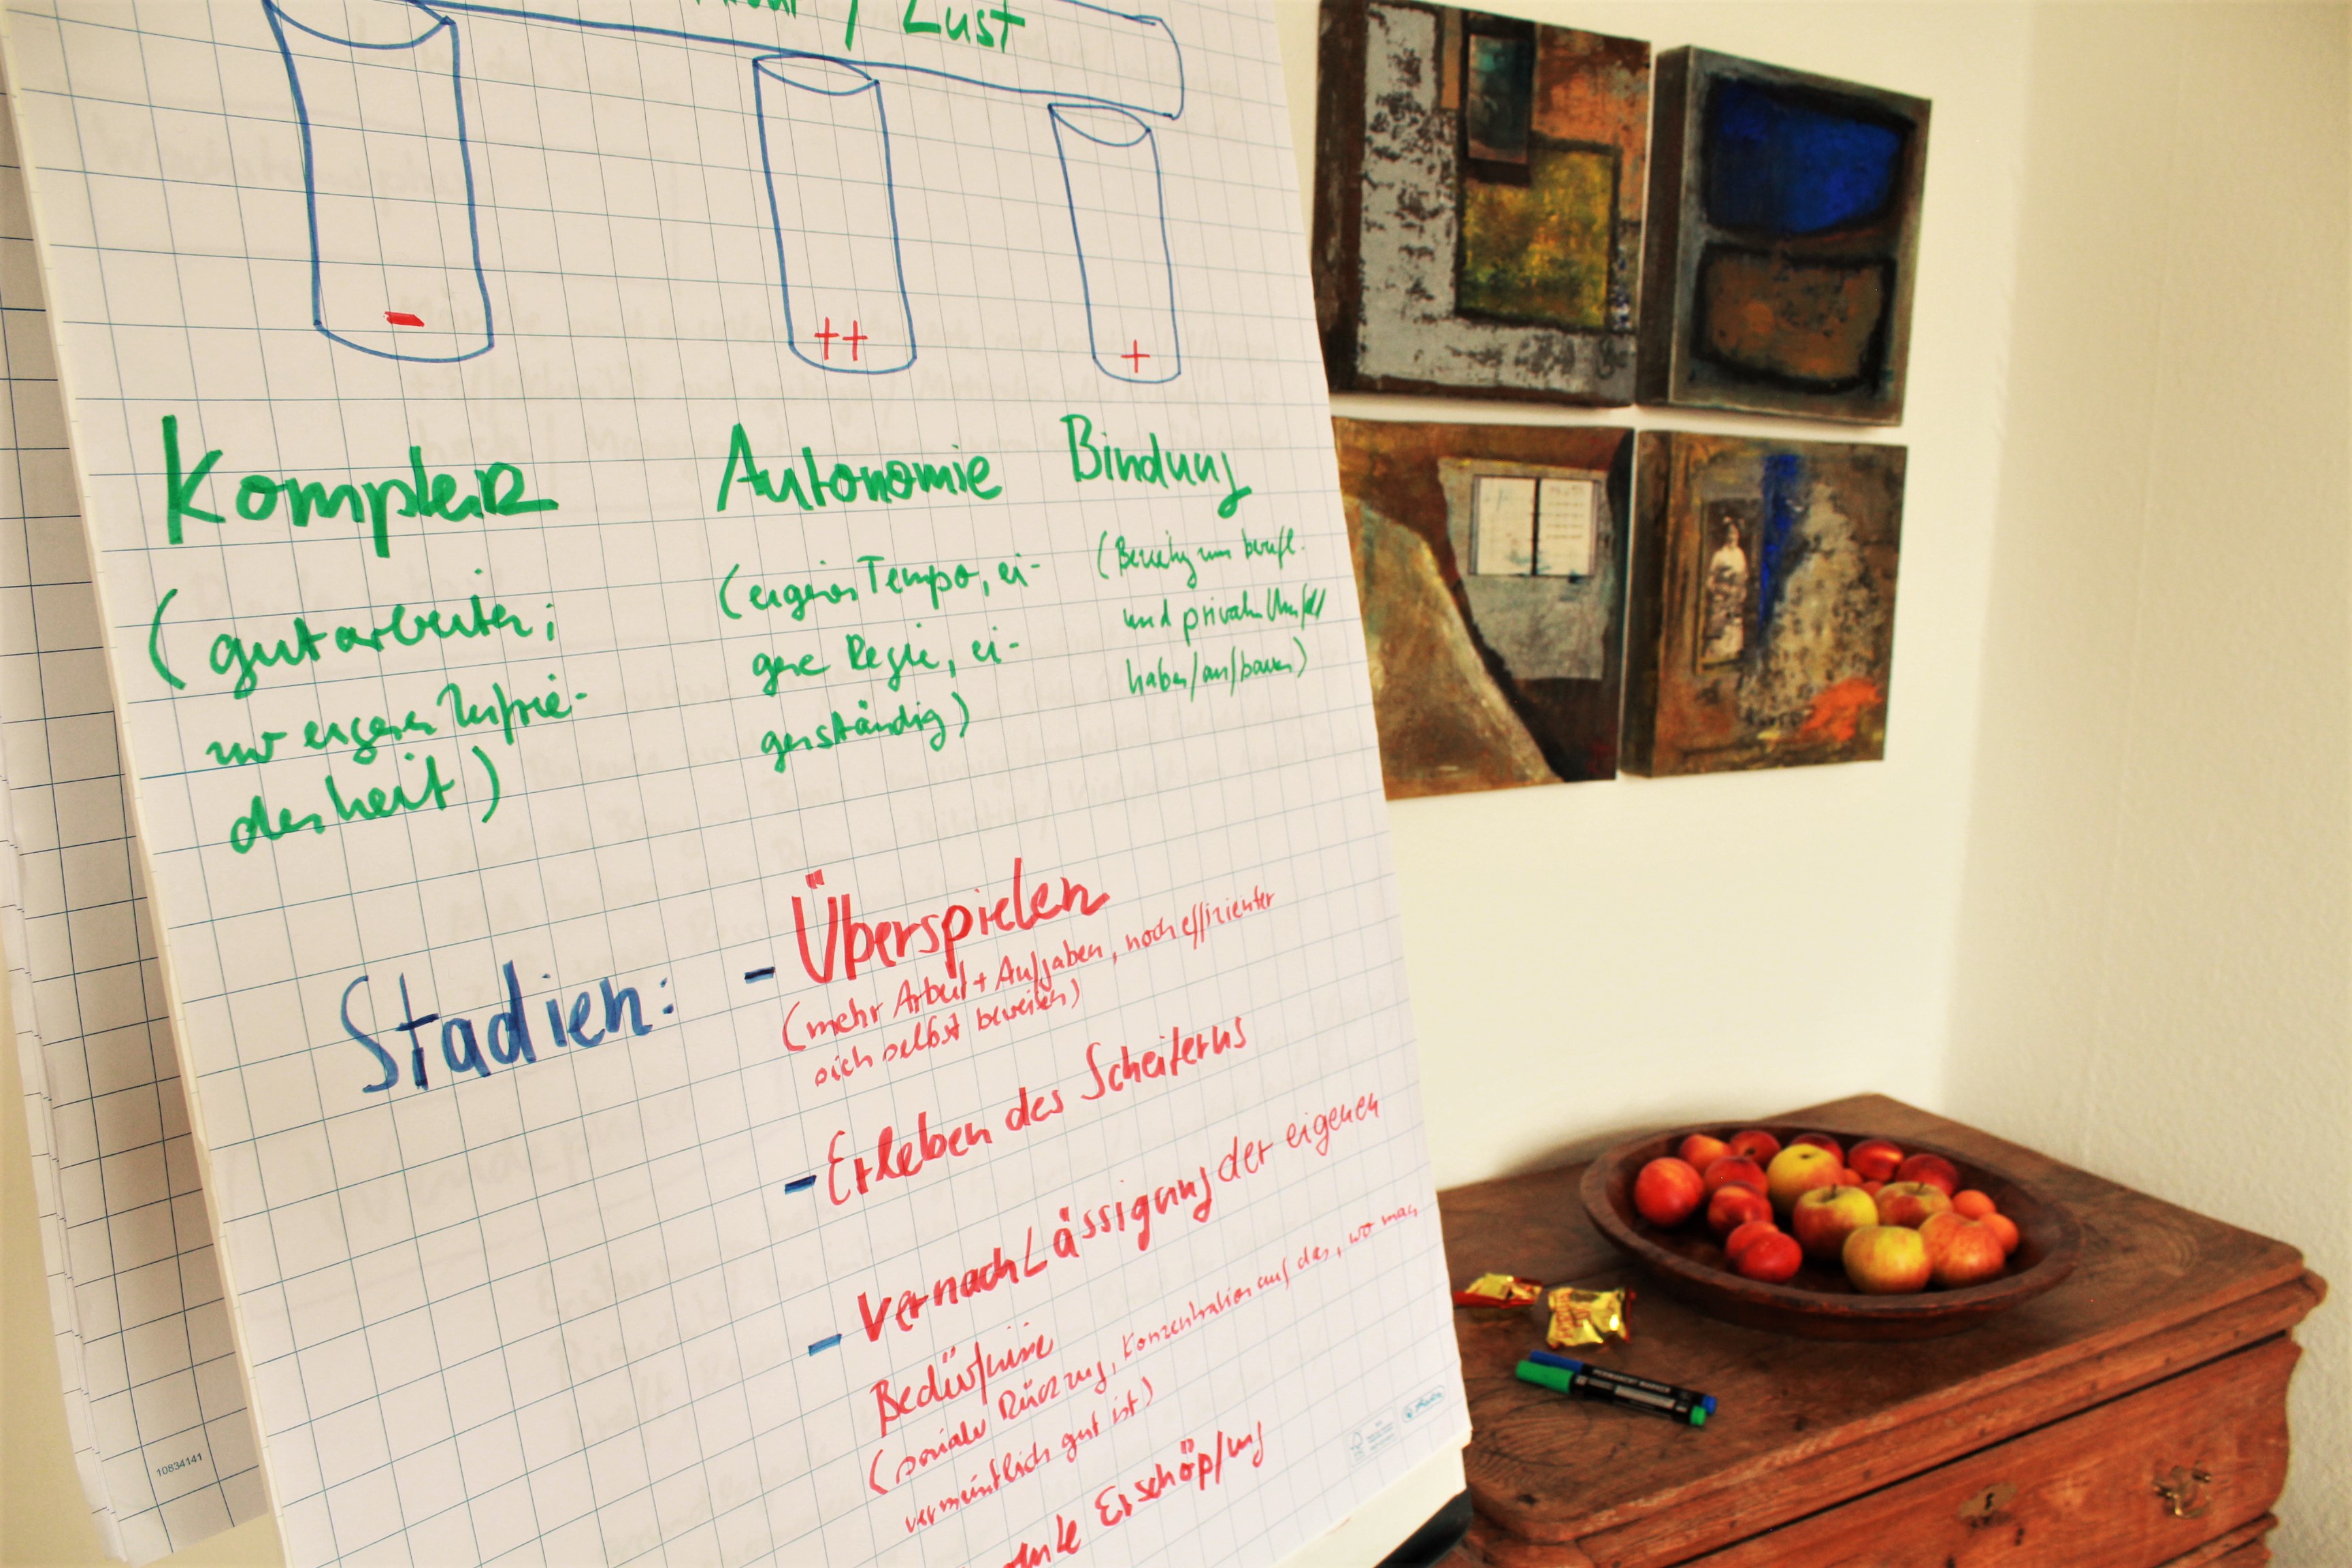 / Lust
-
++
+
Komplex
Autonomie
Bindung
(gut arbeiten;
zur eigenen Zufrie-
denheit)
(eigenes Tempo, ei-
gene Regie, ei-
genständig)
(Beziehg zum berufl.
und privaten Umfeld
haben/aufbauen)
Stadien:
- Überspielen
(mehr Arbeit + Aufgaben, noch effizienter
sich selbst beweisen)
- Erleben des Scheiterns
- Vernachlässigung der eigenen
Bedürfnisse
(sozialer Rückzug, Konzentration auf das, wo man
vermeintlich gut ist)
Erschöpfung
10834141